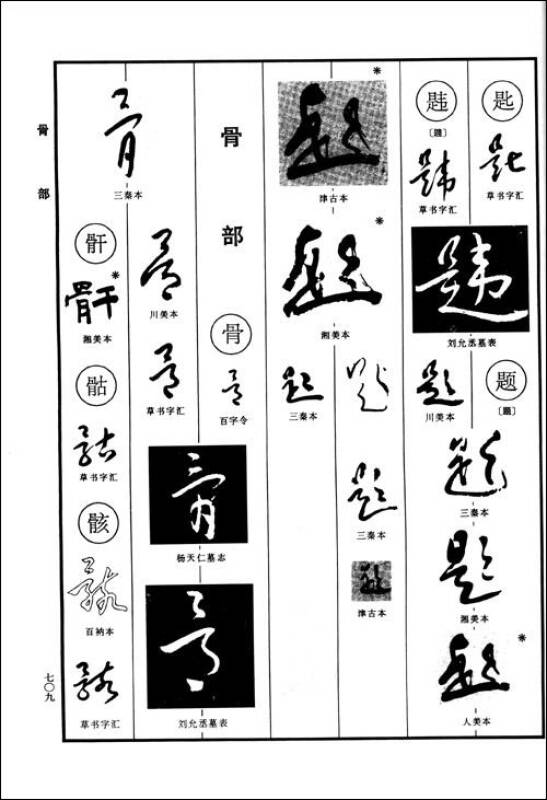 匙
草书字汇
题
〔題〕
三秦本
湘美本
*
人美本
韪
〔韙〕
草书字汇
刘允丞墓表
川美本
三秦本
津古本
*
津古本
*
湘美本
三秦本
骨部
骨
百字令
川美本
草书字汇
杨天仁墓志
刘允丞墓表
三秦本
骭
*
湘美本
骷
草书字汇
骸
百衲本
草书字汇
骨部
七〇九